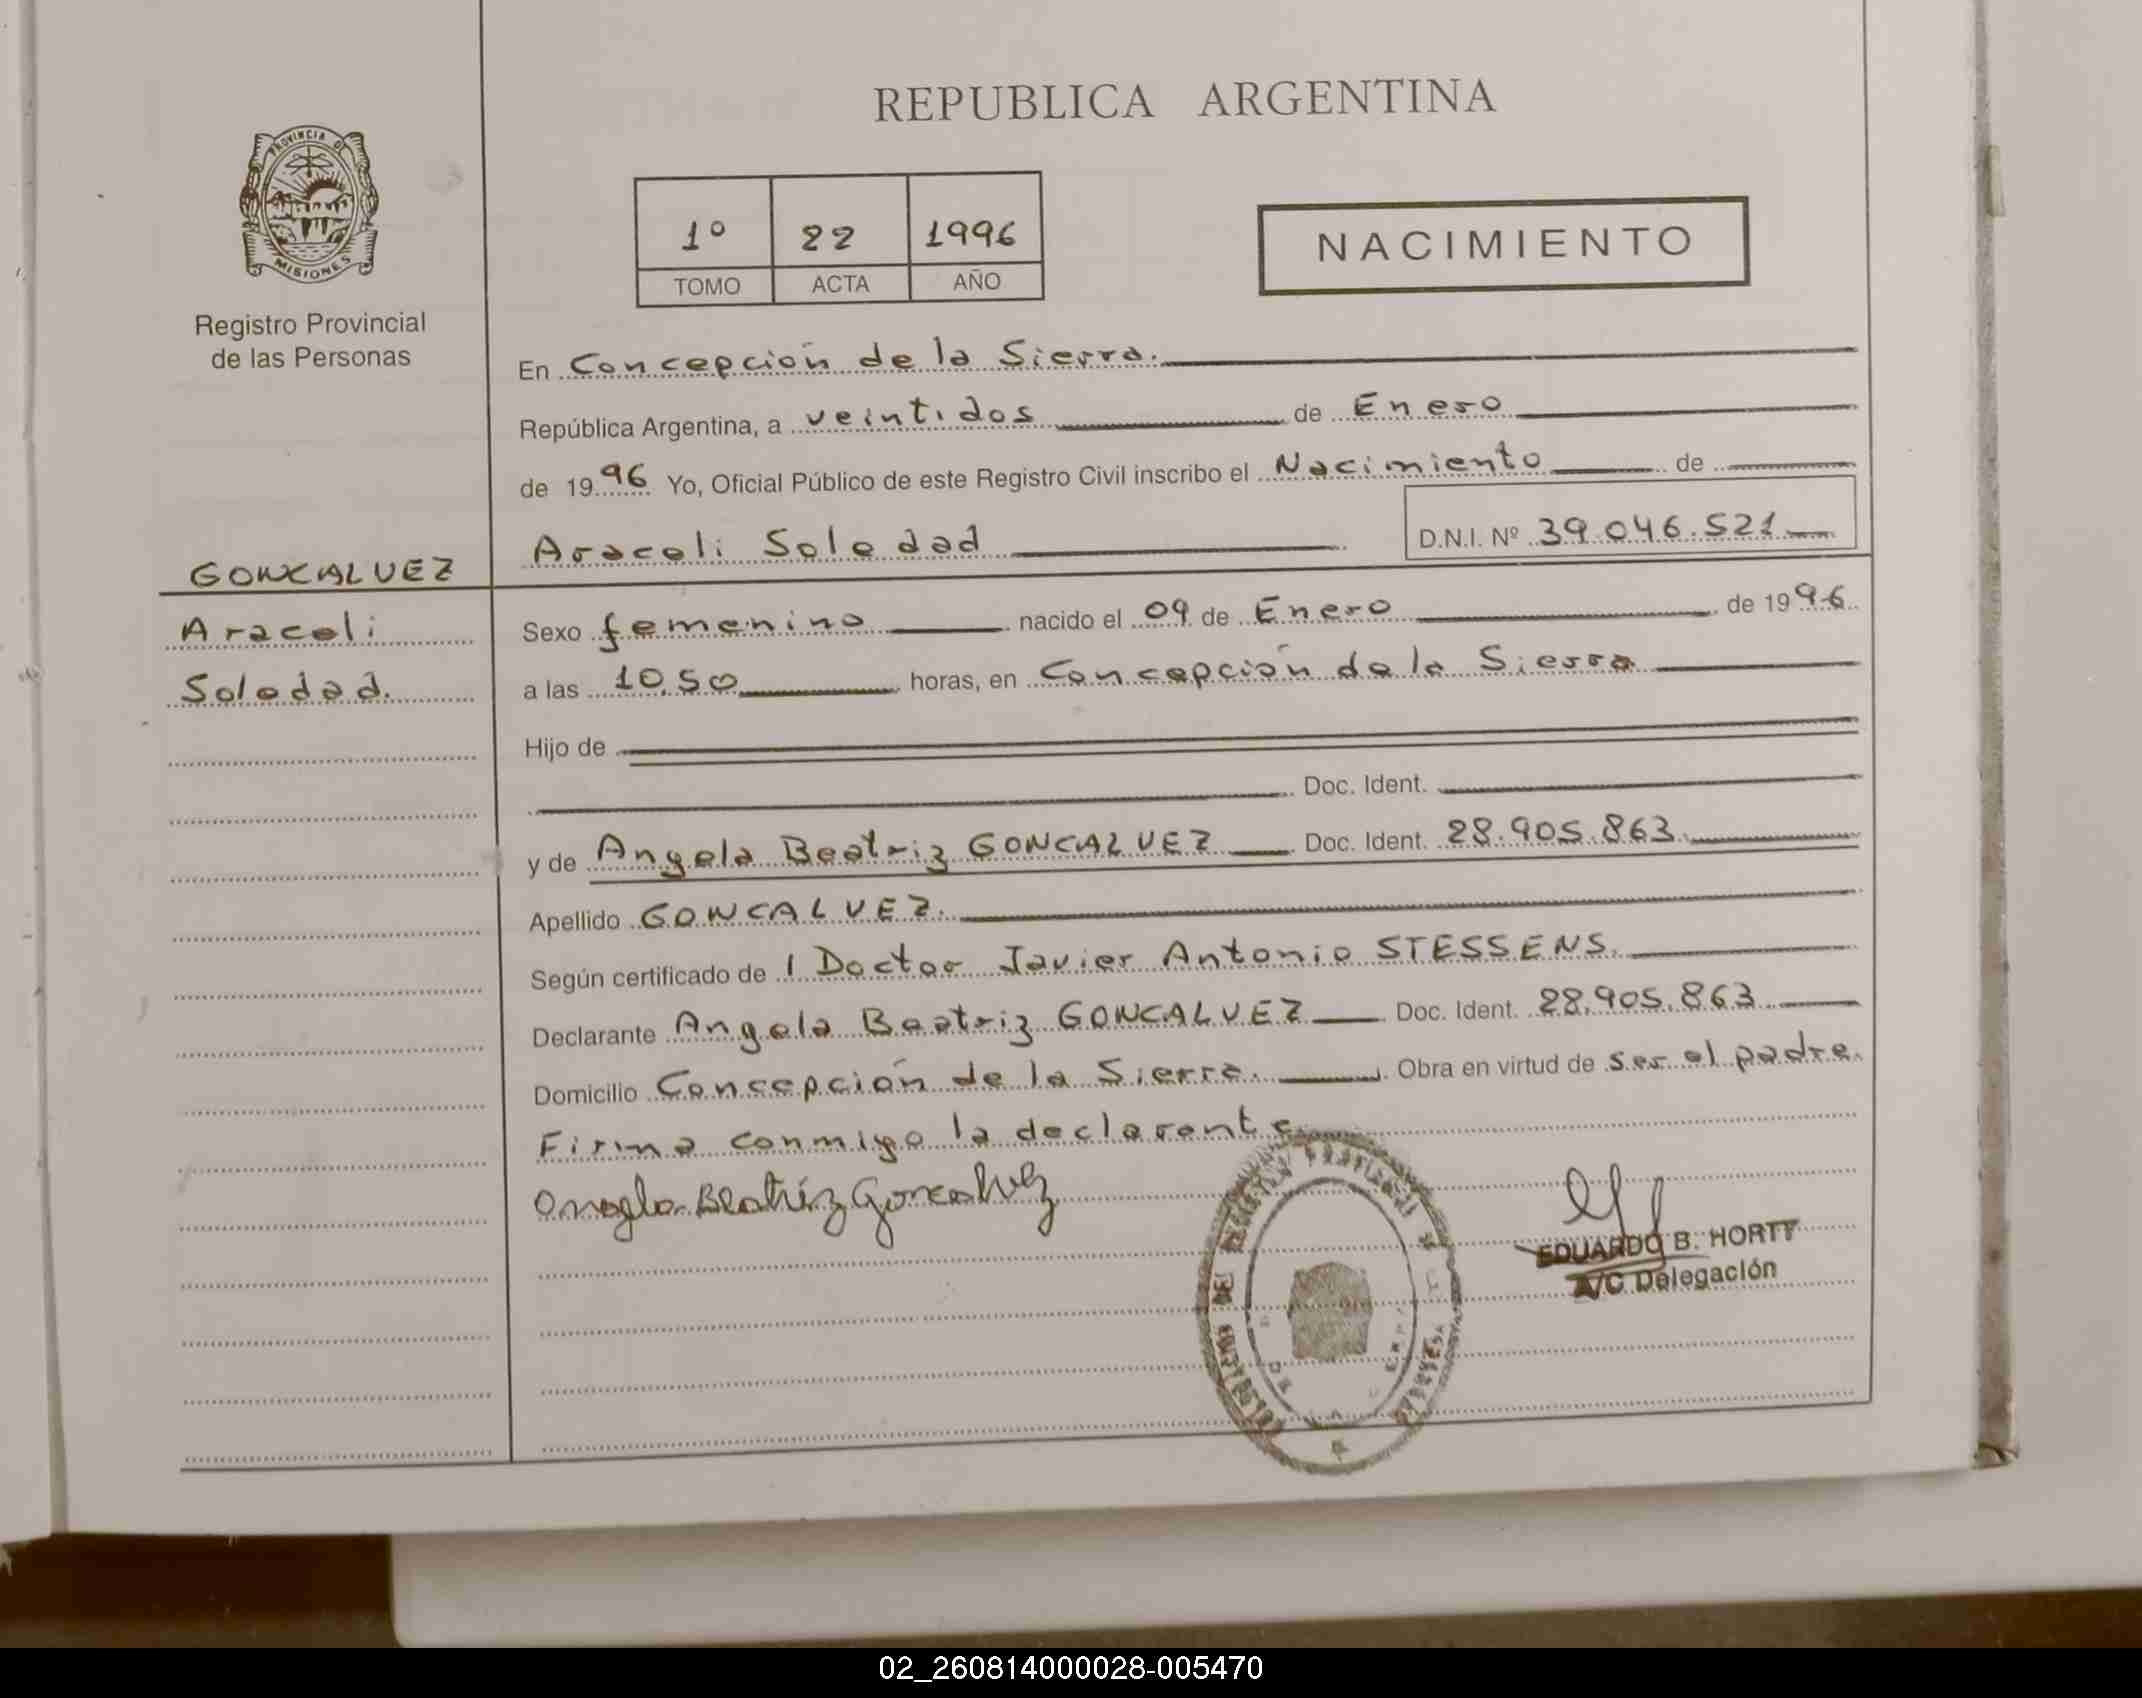 REPUBLICA ARGENTINA
PROVINCIA DE
MISIONES
Registro Provincial
de las Personas
1º 22 1996
TOMO ACTA AÑO
NACIMIENTO
En Concepción de la Sierra.
República Argentina, a veintidos de Enero
de 1996 Yo, Oficial Público de este Registro Civil inscribo el Nacimiento de
Araceli Soledad D.N.I. Nº 39.046.521
GONCALVEZ
Araceli
Soledad.
Sexo femenino nacido el 09 de Enero de 1996
a las 10,50 horas, en Concepción de la Sierra
Hijo de
Doc. Ident.
y de Angela Beatriz GONCALVEZ Doc. Ident. 28.905.863
Apellido GONCALVEZ.
Según certificado de l Doctor Javier Antonio STESSENS.
Declarante Angela Beatriz GONCALVEZ Doc. Ident. 28.905.863
Domicilio Concepción de la Sierra. Obra en virtud de ser el padre.
Firma conmigo la declarante
Angela Beatriz Goncalvez
EDUARDO B. HORTT
A/C Delegación
02_260814000028-005470